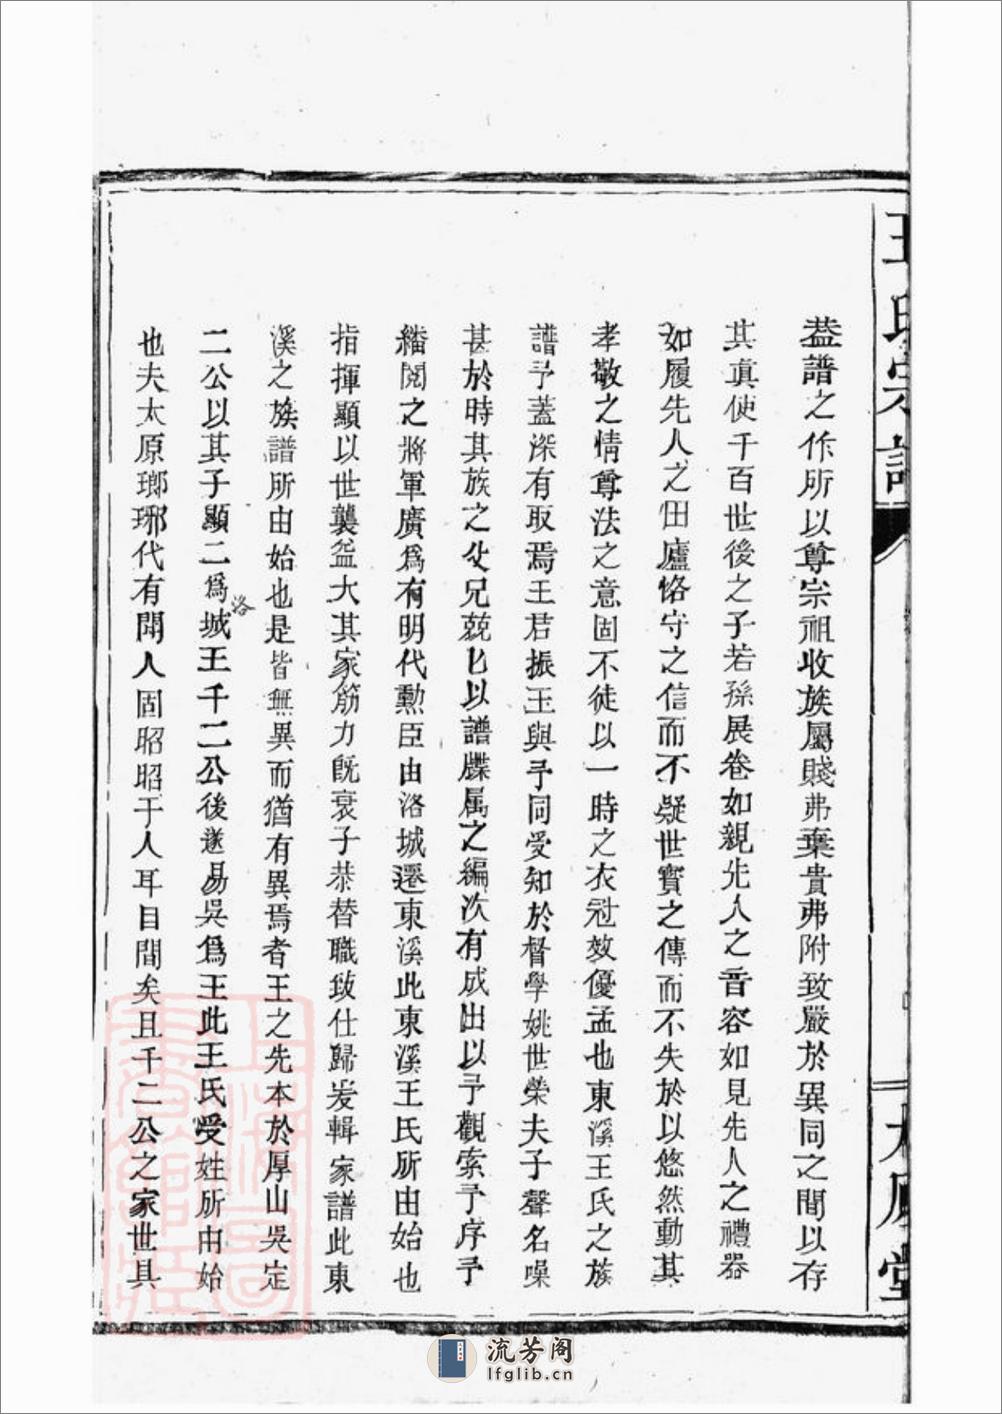 王氏宗譜
大原堂
葢譜之作所以尊宗祖收族屬賤弗棄貴弗附致嚴於異同之間以存
其眞使千百世後之子若孫展卷如親先人之音容如見先人之禮器
如履先人之田廬恪守之信而不疑世寶之傳而不失於以悠然動其
孝敬之情尊法之意固不徒以一時之衣冠效優孟也東溪王氏之族
譜予蓋深有取焉王君振玉與予同受知於督學姚世榮夫子聲名噪
甚於時其族之父兄兢兢以譜牒属之編次有成出以予觀索予序予
繙閱之將軍廣爲有明代勳臣由洛城遷東溪此東溪王氏所由始也
指揮顯以世襲益大其家筋力旣衰子恭替職致仕歸爰輯家譜此東
溪之族譜所由始也是皆無異而猶有異焉者王之先本於厚山吳定
二公以其子顯二爲洛城王千二公後遂易吳爲王此王氏受姓所由始
也夫太原瑯琊代有聞人固昭昭于人耳目間矣且千二公之家世具
流芳阁
lfglib.cn